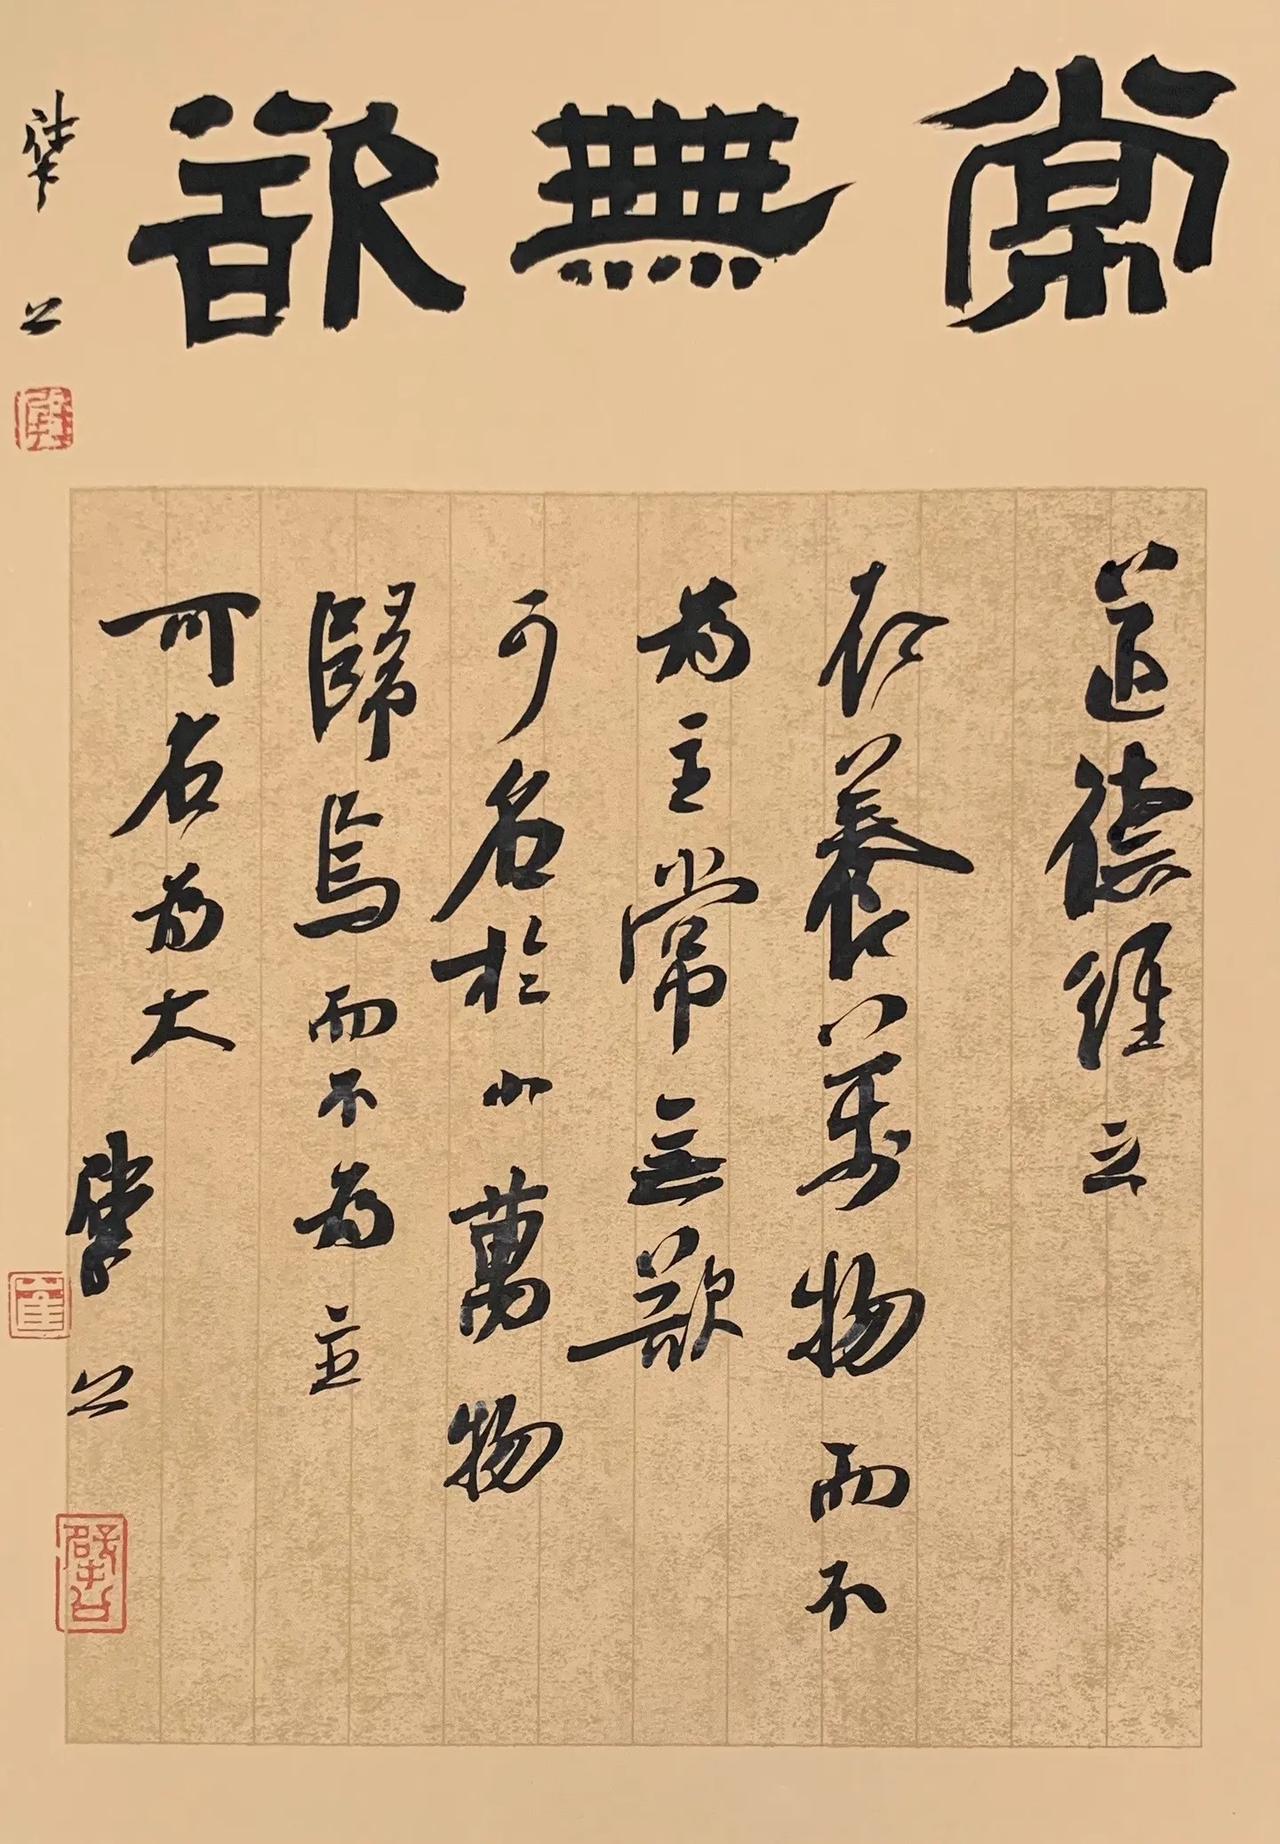 常無欲
道德經云
衣養萬物而不
為主常無欲
可名於小萬物
歸焉而不為主
可名為大
崔